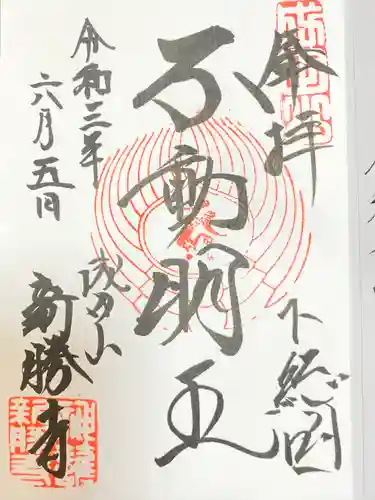 成田山
奉拝
下総国
不動明王
令和三年
六月五日
成田山
新勝寺